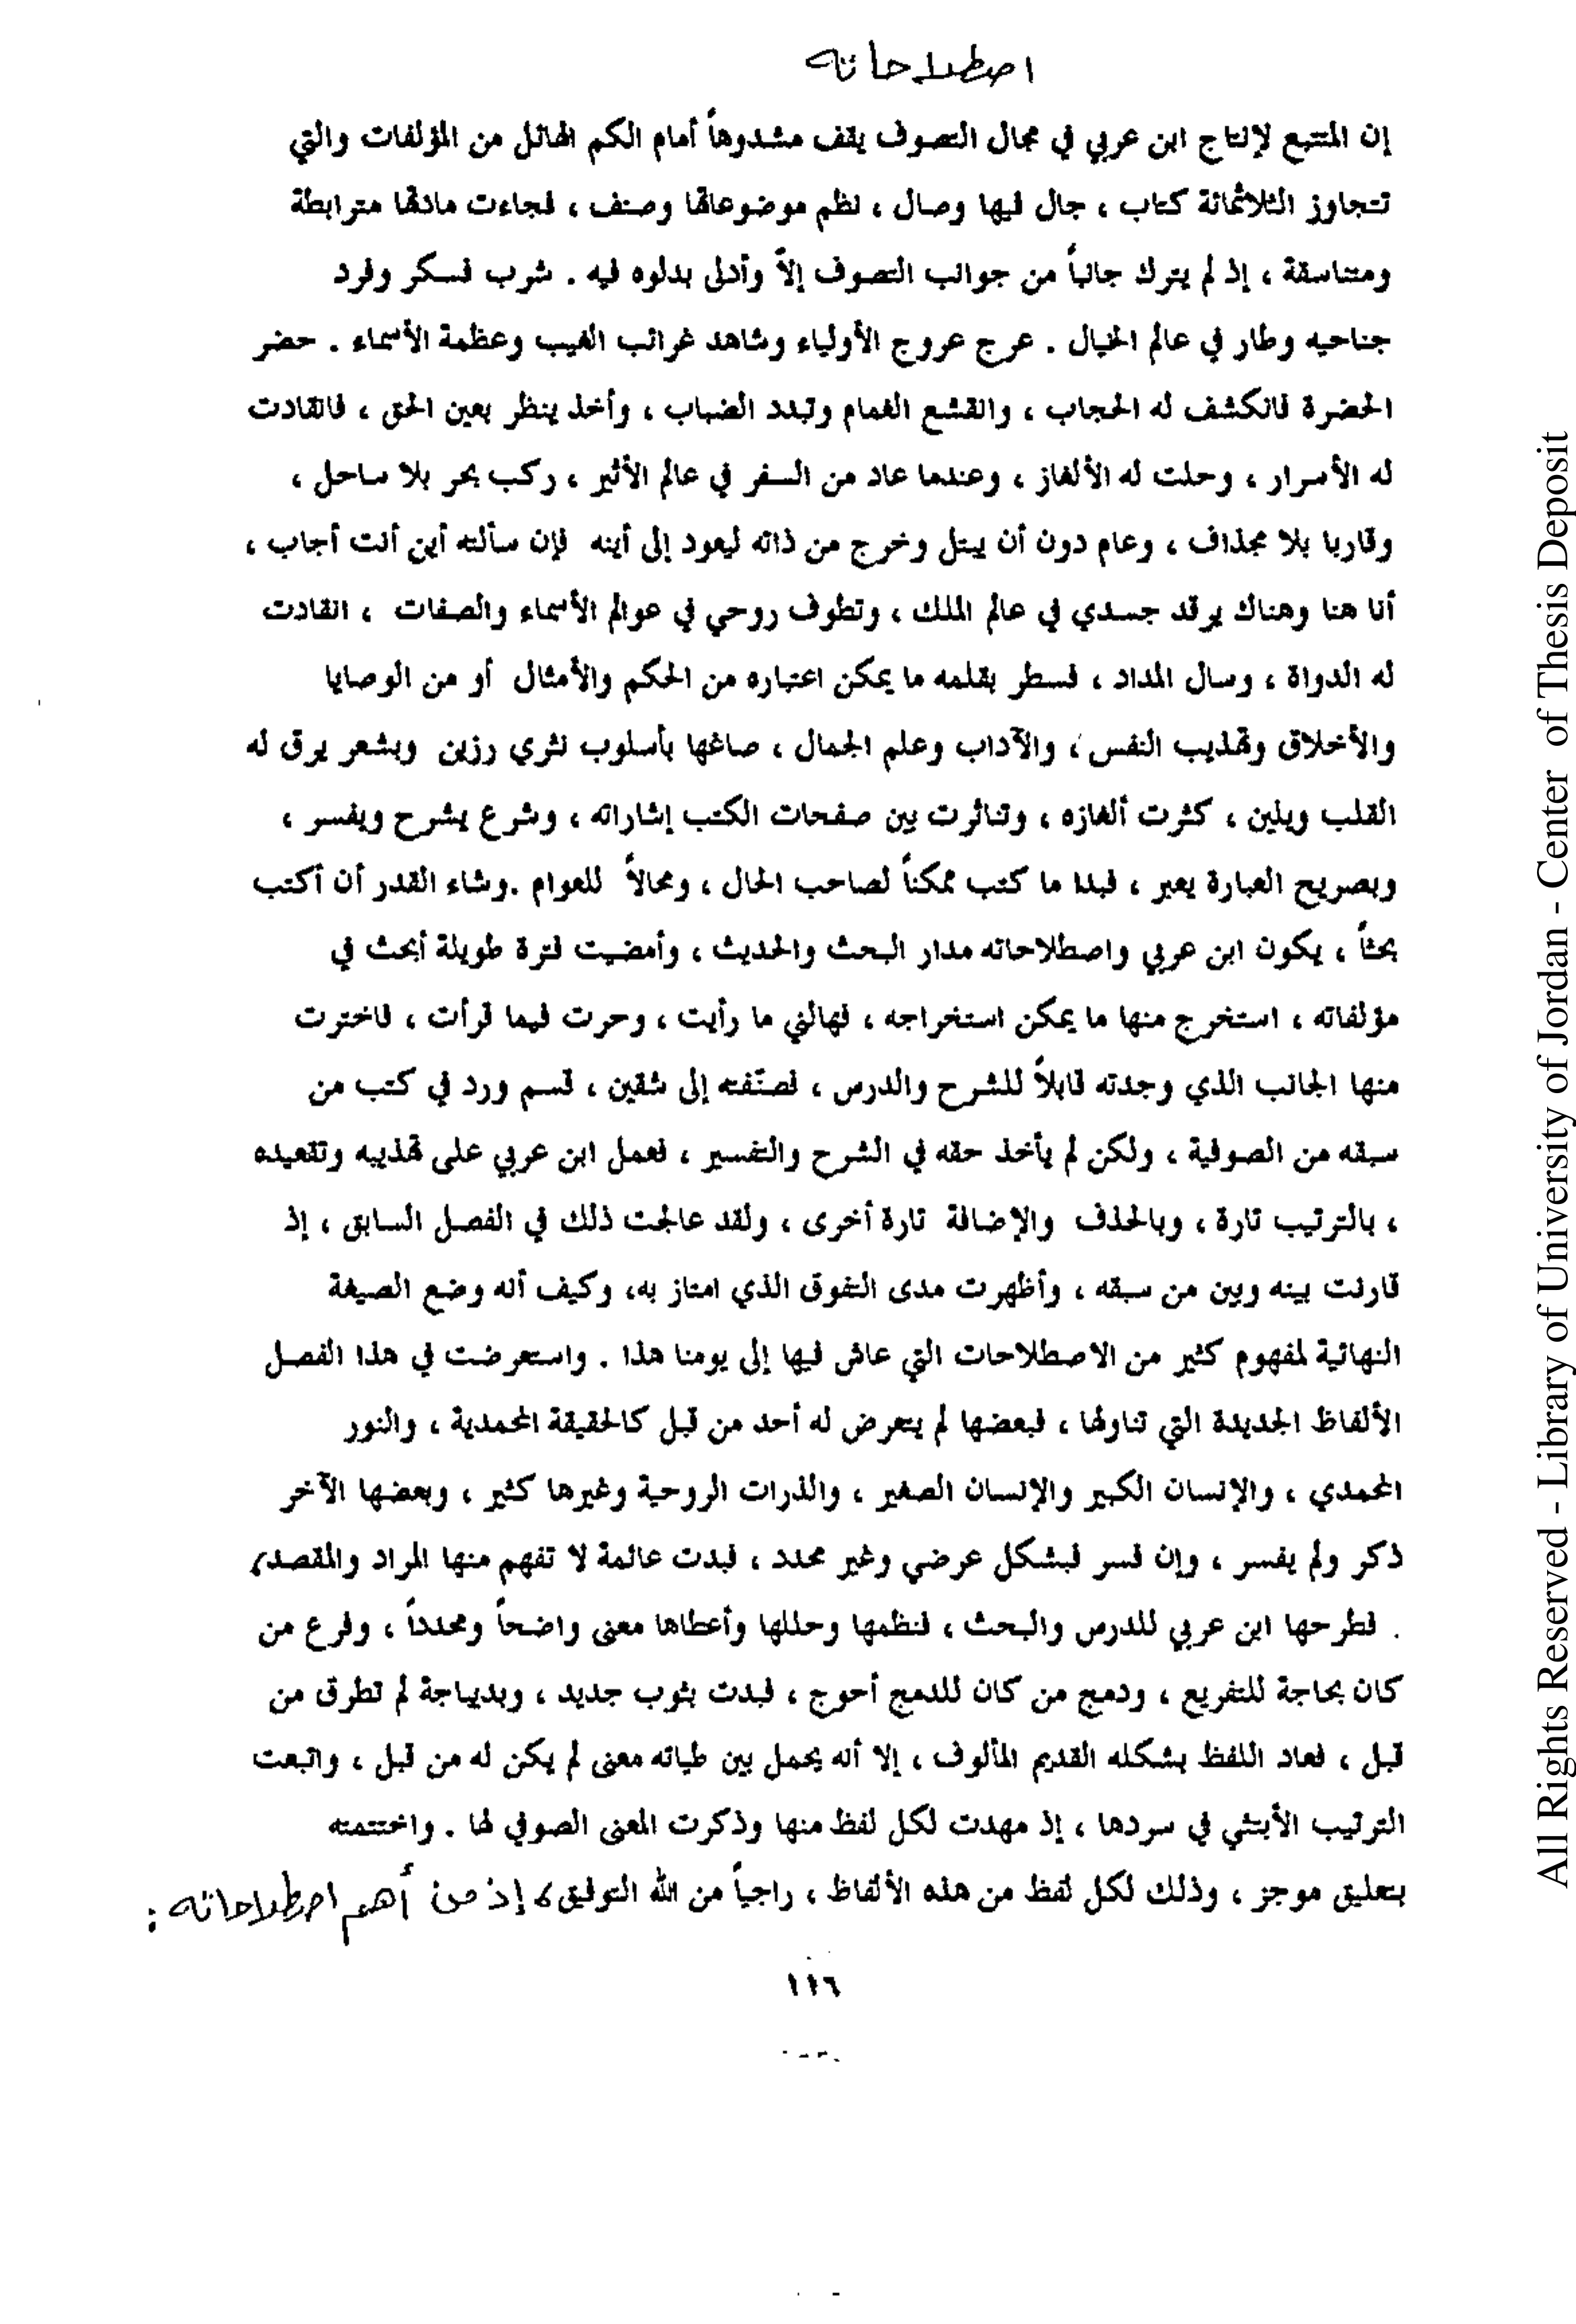 اصطلاحاته
إن المتتبع لإنتاج ابن عربي في مجال التصوف يقف مشدوهاً أمام الكم الهائل من المؤلفات والتي
تتجاوز الثلاثمائة كتاب ، جال فيها وصال ، نظم موضوعاتها وصنف ، فجاءت مادتها مترابطة
ومتناسقة ، إذ لم يترك جانباً من جوانب التصوف إلاّ وأدلى بدلوه فيه . شرب فسكر وفرد
جناحيه وطار في عالم الخيال . عرج عروج الأولياء وشاهد غرائب الغيب وعظمة الأسماء . حضر
الحضرة فانكشف له الحجاب ، وانقشع الغمام وتبدد الضباب ، وأخذ ينظر بعين الحق ، فانقادت
له الأسرار ، وحلت له الألغاز ، وعندما عاد من السفر في عالم الأثير ، ركب بحر بلا ساحل ،
وقاربا بلا مجذاف ، وعام دون أن يبتل وخرج من ذاته ليعود إلى أينه فإن سألته أين أنت أجاب ،
أنا هنا وهناك يرقد جسدي في عالم الملك ، وتطوف روحي في عوالم الأسماء والصفات ، انقادت
له الدواة ، وسال المداد ، فسطر بقلمه ما يمكن اعتباره من الحكم والأمثال أو من الوصايا
والأخلاق وتهذيب النفس ، والآداب وعلم الجمال ، صاغها بأسلوب نثري رزين وبشعر يرق له
القلب ويلين ، كثرت ألغازه ، وتناثرت بين صفحات الكتب إشاراته ، وشرع يشرح ويفسر ،
وبصريح العبارة يعبر ، فبدا ما كتب ممكناً لصاحب الحال ، ومحالاً للعوام .وشاء القدر أن أكتب
بحثاً ، يكون ابن عربي واصطلاحاته مدار البحث والحديث ، وأمضيت فترة طويلة أبحث في
مؤلفاته ، استخرج منها ما يمكن استخراجه ، فهالني ما رأيت ، وحرت فيما قرأت ، فاخترت
منها الجانب الذي وجدته قابلاً للشرح والدرس ، فصنّفته إلى شقين ، قسم ورد في كتب من
سبقه من الصوفية ، ولكن لم يأخذ حقه في الشرح والتفسير ، فعمل ابن عربي على تهذيبه وتقعيده
، بالترتيب تارة ، وبالحذف والإضافة تارة أخرى ، ولقد عالجت ذلك في الفصل السابق ، إذ
قارنت بينه وبين من سبقه ، وأظهرت مدى التفوق الذي امتاز به، وكيف أنه وضع الصيغة
النهائية لمفهوم كثير من الاصطلاحات التي عاش فيها إلى يومنا هذا . واستعرضت في هذا الفصل
الألفاظ الجديدة التي تناولها ، فبعضها لم يتعرض له أحد من قبل كالحقيقة المحمدية ، والنور
المحمدي ، والإنسان الكبير والإنسان الصغير ، والذرات الروحية وغيرها كثير ، وبعضها الآخر
ذكر ولم يفسر ، وإن فسر فبشكل عرضي وغير محدد ، فبدت عائمة لا تفهم منها المراد والمقصد
. فطرحها ابن عربي للدرس والبحث ، فنظمها وحللها وأعطاها معنى واضحاً ومحدداً ، وفرع من
كان بحاجة للتفريع ، ودمج من كان للدمج أحوج ، فبدت بثوب جديد ، وبديباجة لم تطرق من
قبل ، فعاد اللفظ بشكله القديم المألوف ، إلا أنه يحمل بين طياته معنى لم يكن له من قبل ، واتبعت
الترتيب الأبتثي في سردها ، إذ مهدت لكل لفظ منها وذكرت المعنى الصوفي لها . واختتمته
بتعليق موجز ، وذلك لكل لفظ من هذه الألفاظ ، راجياً من الله التوفيق، إذ من أهم اصطلاحاته :
١١٦
All Rights Reserved - Library of University of Jordan - Center of Thesis Deposit